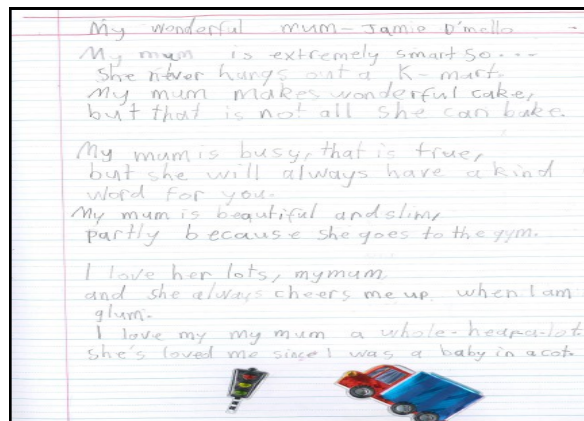 My wonderful mum - Jamie D'mello
My mum is extremely smart so...
She never hungs out a K-mart.
My mum makes wonderful cake,
but that is not all she can bake.
My mum is busy, that is true,
but she will always have a kind
word for you.
My mum is beautiful and slim,
partly because she goes to the gym.
I love her lots, my mum
and she always cheers me up when I am
glum.
I love my my mum a whole-heap-a-lot
she's loved me since I was a baby in a cot.